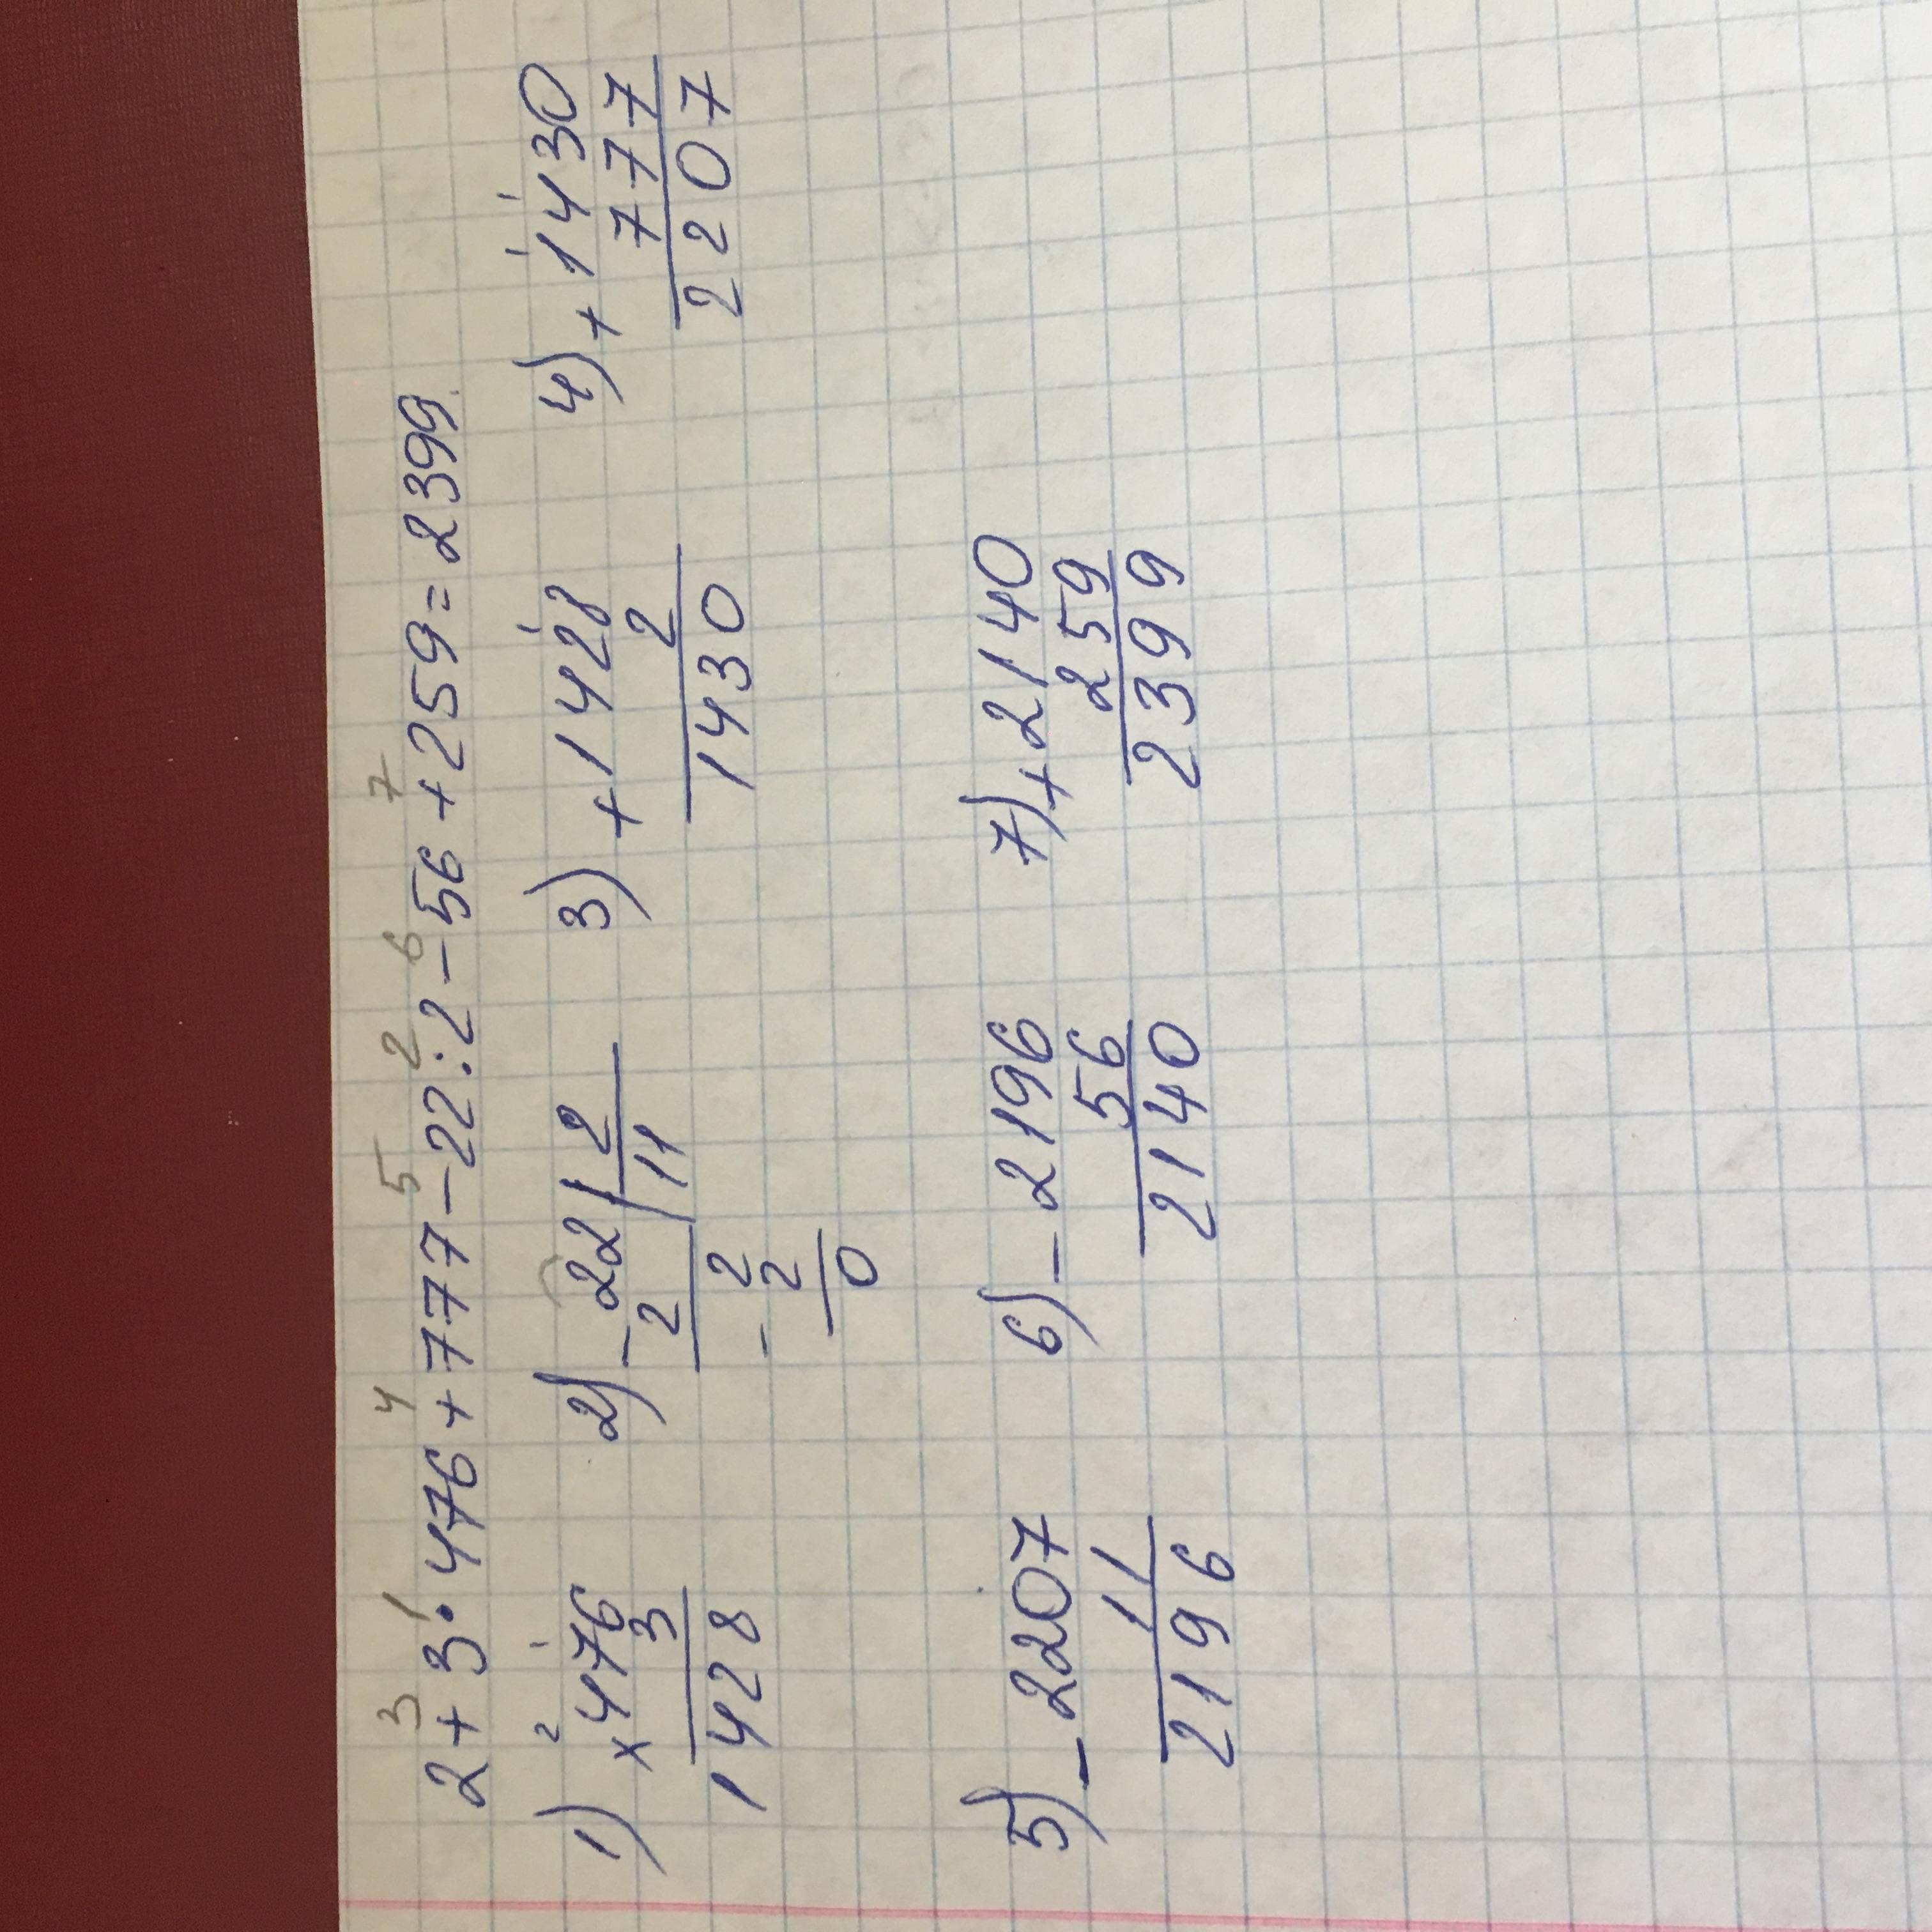 3 1 4 5 2 6 7
2+3·476+777-22:2-56+259=2399
1) 2) 3) 4)
2 1 1 1 1
×476 -22|2 +1428 +1430
3 2 11 2 777
1428 1430 2207
-2
2
0
5) 6) 7)
-2207 -2196 +2140
11 56 259
2196 2140 2399